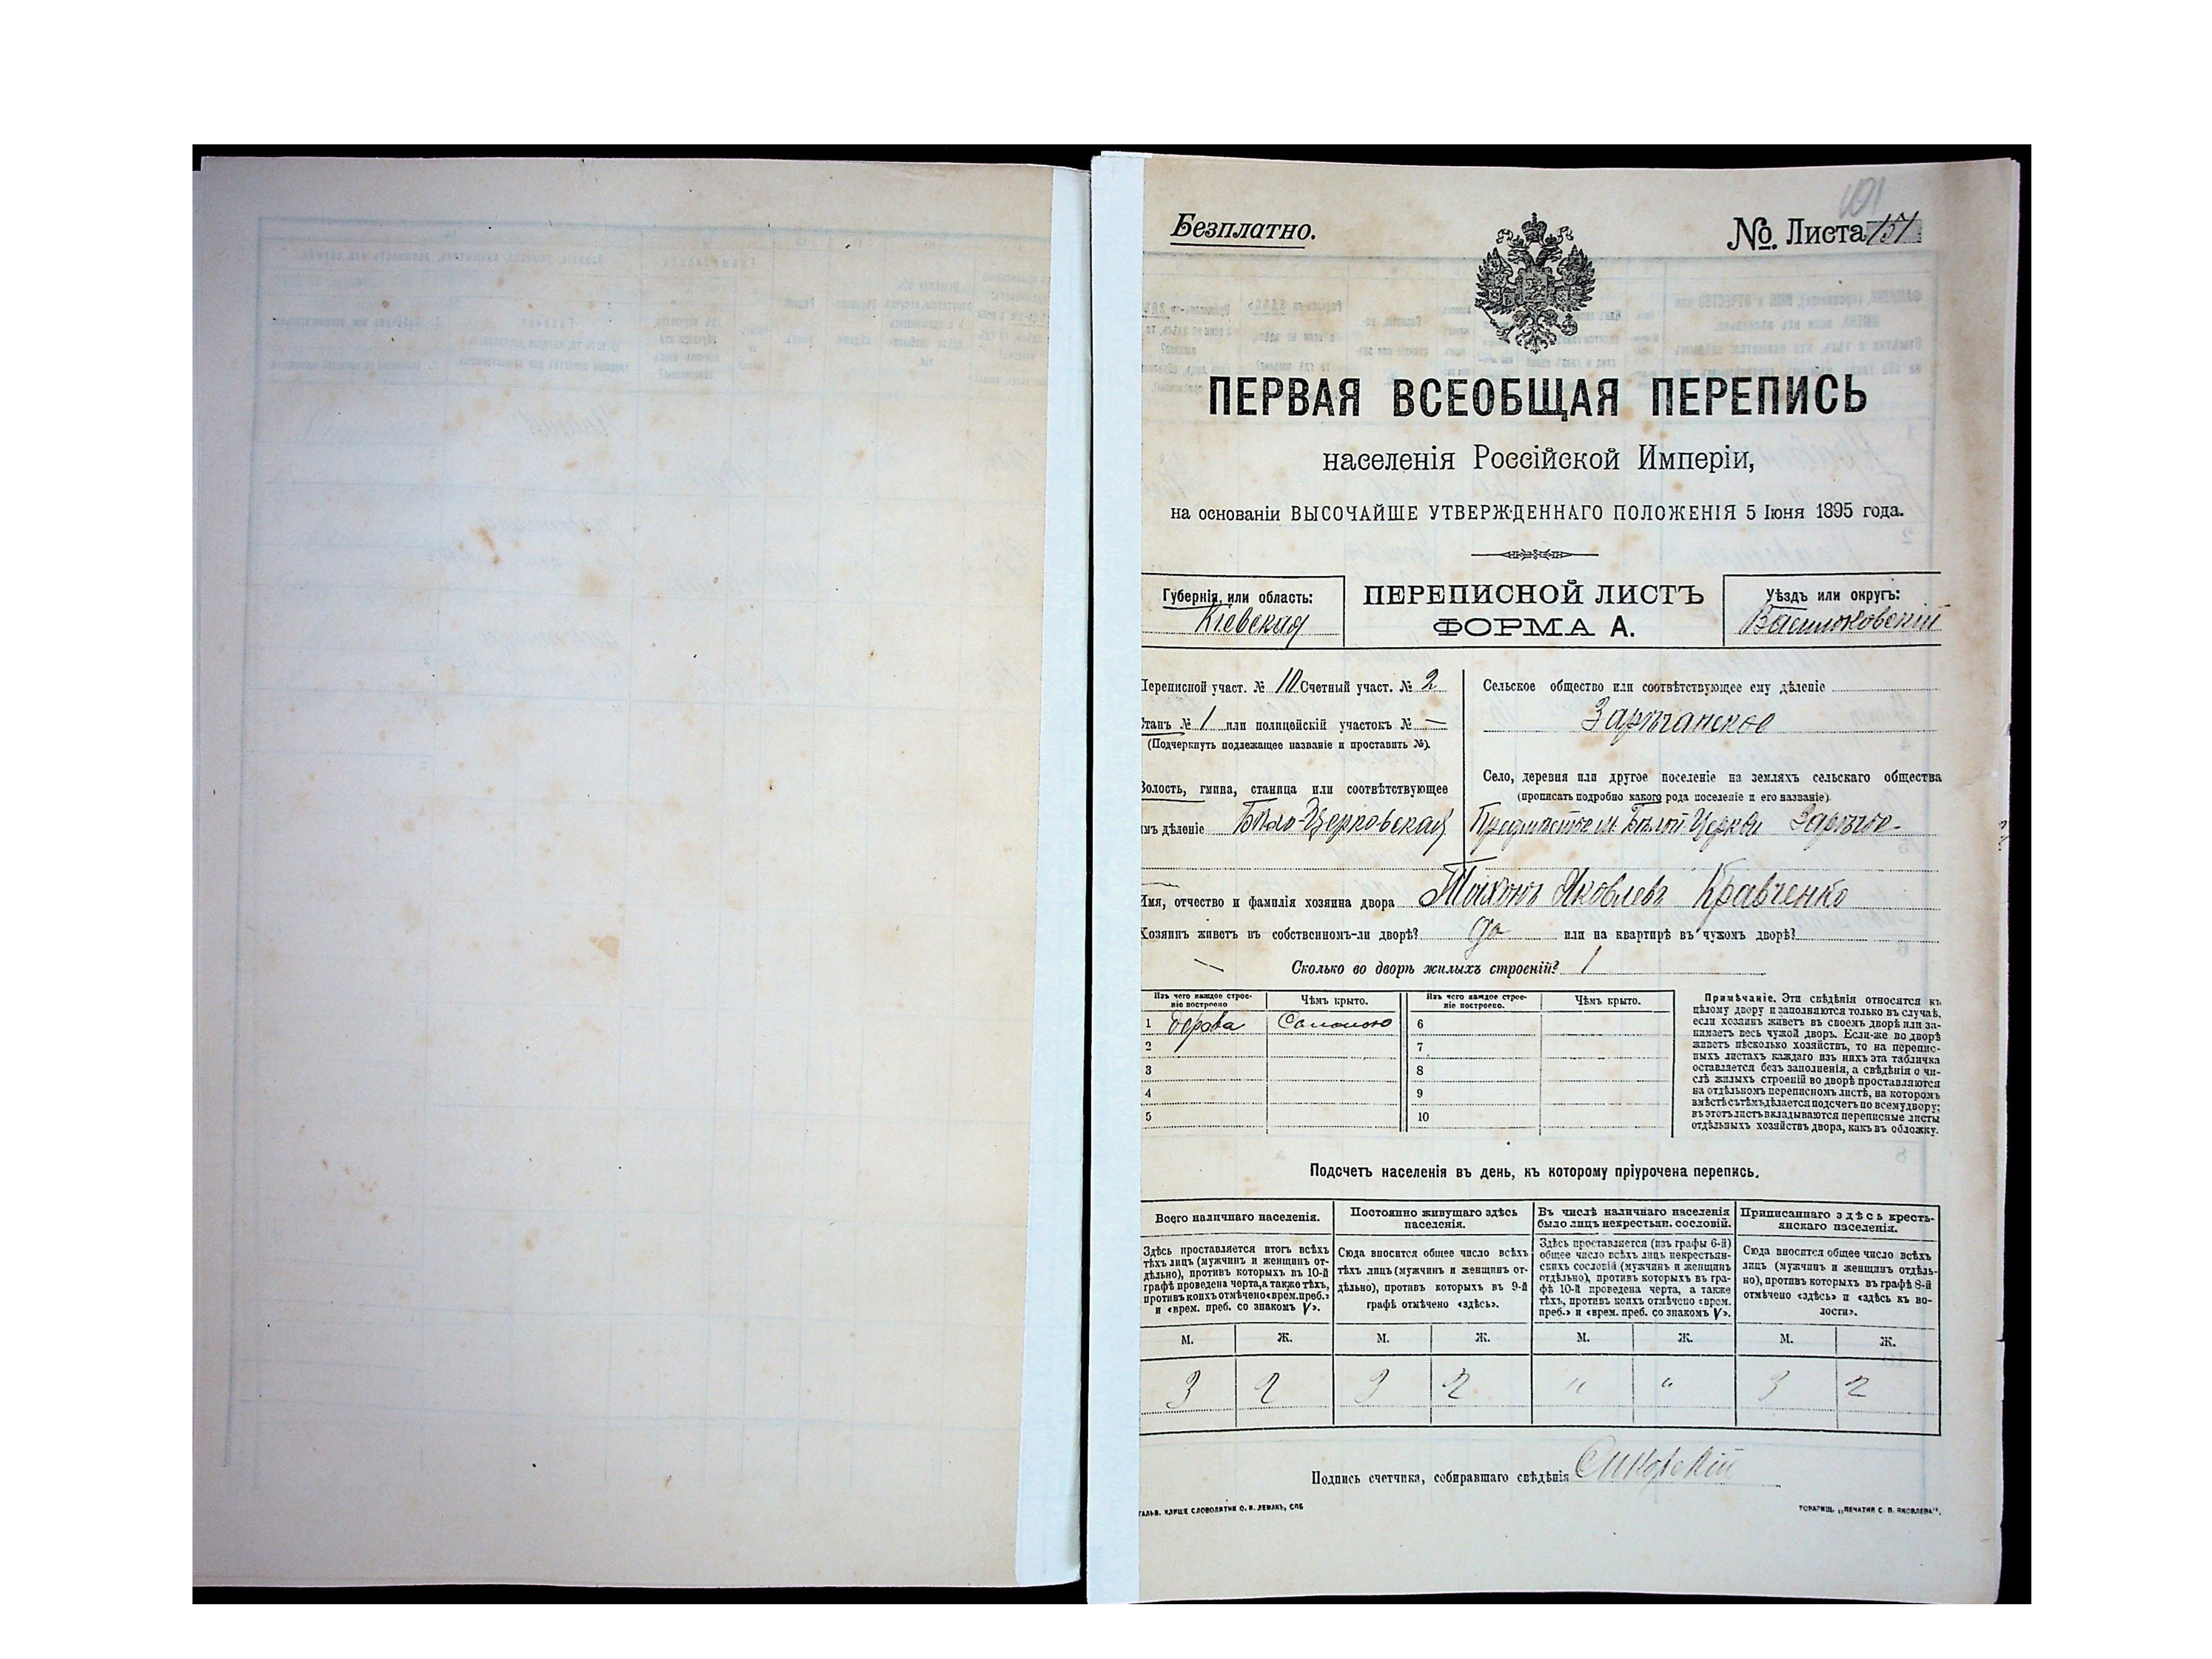 101
Безплатно.
№. Листа 151
ПЕРВАЯ ВСЕОБЩАЯ ПЕРЕПИСЬ
населенія Россійской Имперіи,
на основаніи ВЫСОЧАЙШЕ УТВЕРЖДЕННАГО ПОЛОЖЕНІЯ 5 Іюня 1895 года.
Губернія, или область:
Кіевская
ПЕРЕПИСНОЙ ЛИСТЪ
ФОРМА А.
Уѣздъ или округъ:
Васильковскій
Переписной участ. № 10 Счетный участ. № 2
Станъ № 1 или полицейскій участокъ № —
(Подчеркнуть подлежащее названіе и проставить №).
Волость, гмина, станица или соотвѣтствующее
имъ дѣленіе Бѣло-Церковская
Сельское общество или соотвѣтствующее ему дѣленіе
Зарѣчанское
Село, деревня или другое поселеніе на земляхъ сельскаго общества
(прописать подробно какого рода поселеніе и его названіе).
Предмѣстье м. Бѣлой Церкви Зарѣчье
Имя, отчество и фамилія хозяина двора Тихонъ Яковлевъ Кравченко
Хозяинъ живетъ въ собственномъ-ли дворѣ? да или на квартирѣ въ чужомъ дворѣ?
Сколько во дворѣ жилыхъ строеній? 1
Изъ чего каждое строе-
ніе построено
Чѣмъ крыто.
Изъ чего каждое строе-
ніе построено.
Чѣмъ крыто.
1 дерева Соломою 6
2 7
3 8
4 9
5 10
Примѣчаніе. Эти свѣдѣнія относятся къ
цѣлому двору и заполняются только въ случаѣ,
если хозяинъ живетъ въ своемъ дворѣ или за-
нимаетъ весь чужой дворъ. Если-же во дворѣ
живетъ нѣсколько хозяйствъ, то на перепис-
ныхъ листахъ каждаго изъ нихъ эта табличка
оставляется безъ заполненія, а свѣдѣнія о чи-
слѣ жилыхъ строеній во дворѣ проставляются
на отдѣльномъ переписномъ листѣ, на которомъ
вмѣстѣ съ тѣмъ дѣлается подсчетъ по всему двору;
въ этотъ листъ вкладываются переписные листы
отдѣльныхъ хозяйствъ двора, какъ въ обложку.
Подсчетъ населенія въ день, къ которому пріурочена перепись.
Всего наличнаго населенія.
Здѣсь проставляется итогъ всѣхъ
тѣхъ лицъ (мужчинъ и женщинъ от-
дѣльно), противъ которыхъ въ 10-й
графѣ проведена черта, а также тѣхъ,
противъ коихъ отмѣчено «врем. преб.»
и «врем. преб. со знакомъ V».
Постоянно живущаго здѣсь
населенія.
Сюда вносится общее число всѣхъ
тѣхъ лицъ (мужчинъ и женщинъ от-
дѣльно), противъ которыхъ въ 9-й
графѣ отмѣчено «здѣсь».
Въ числѣ наличнаго населенія
было лицъ некрестьян. сословій.
Здѣсь проставляется (изъ графы 6-й)
общее число всѣхъ лицъ некрестьян-
скихъ сословій (мужчинъ и женщинъ
отдѣльно), противъ которыхъ въ гра-
фѣ 10-й проведена черта, а также
тѣхъ, противъ коихъ отмѣчено «врем.
преб.» и «врем. преб. со знакомъ V».
Приписаннаго здѣсь кресть-
янскаго населенія.
Сюда вносится общее число всѣхъ
лицъ (мужчинъ и женщинъ отдѣль-
но), противъ которыхъ въ графѣ 8-й
отмѣчено «здѣсь» и «здѣсь къ во-
лости».
М. Ж. М. Ж. М. Ж. М. Ж.
3 2 3 2 " " 3 2
Подпись счетчика, собиравшаго свѣдѣнія
ГАЛЬВ. КЛИШЕ СЛОВОЛИТНИ О. И. ЛЕМАНЪ, СПБ
ТОВАРИЩ. „ПЕЧАТНЯ С. П. ЯКОВЛЕВА“.